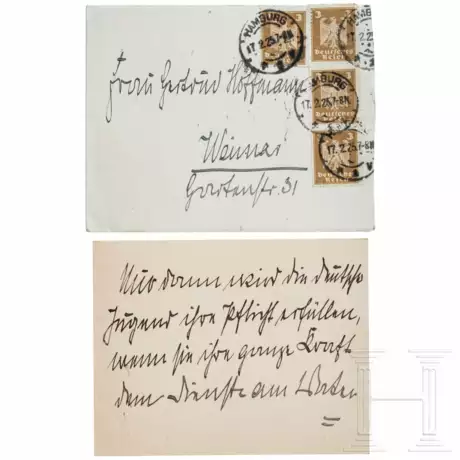 HAMBURG
17.2.25.7-8N.
3
3
Deutsches
Reich
HAMBURG
17.2.25.7-8N.
Deutsches
Reich
17.2.25.7-8N.
Deutsches
Reich
Frau Gertrud Hoffmann
Weimar
Gartenstr. 31
Nur dann wird die deutsche
Jugend ihre Pflicht erfüllen,
wenn sie ihre ganze Kraft
dem Dienste am Vater
=